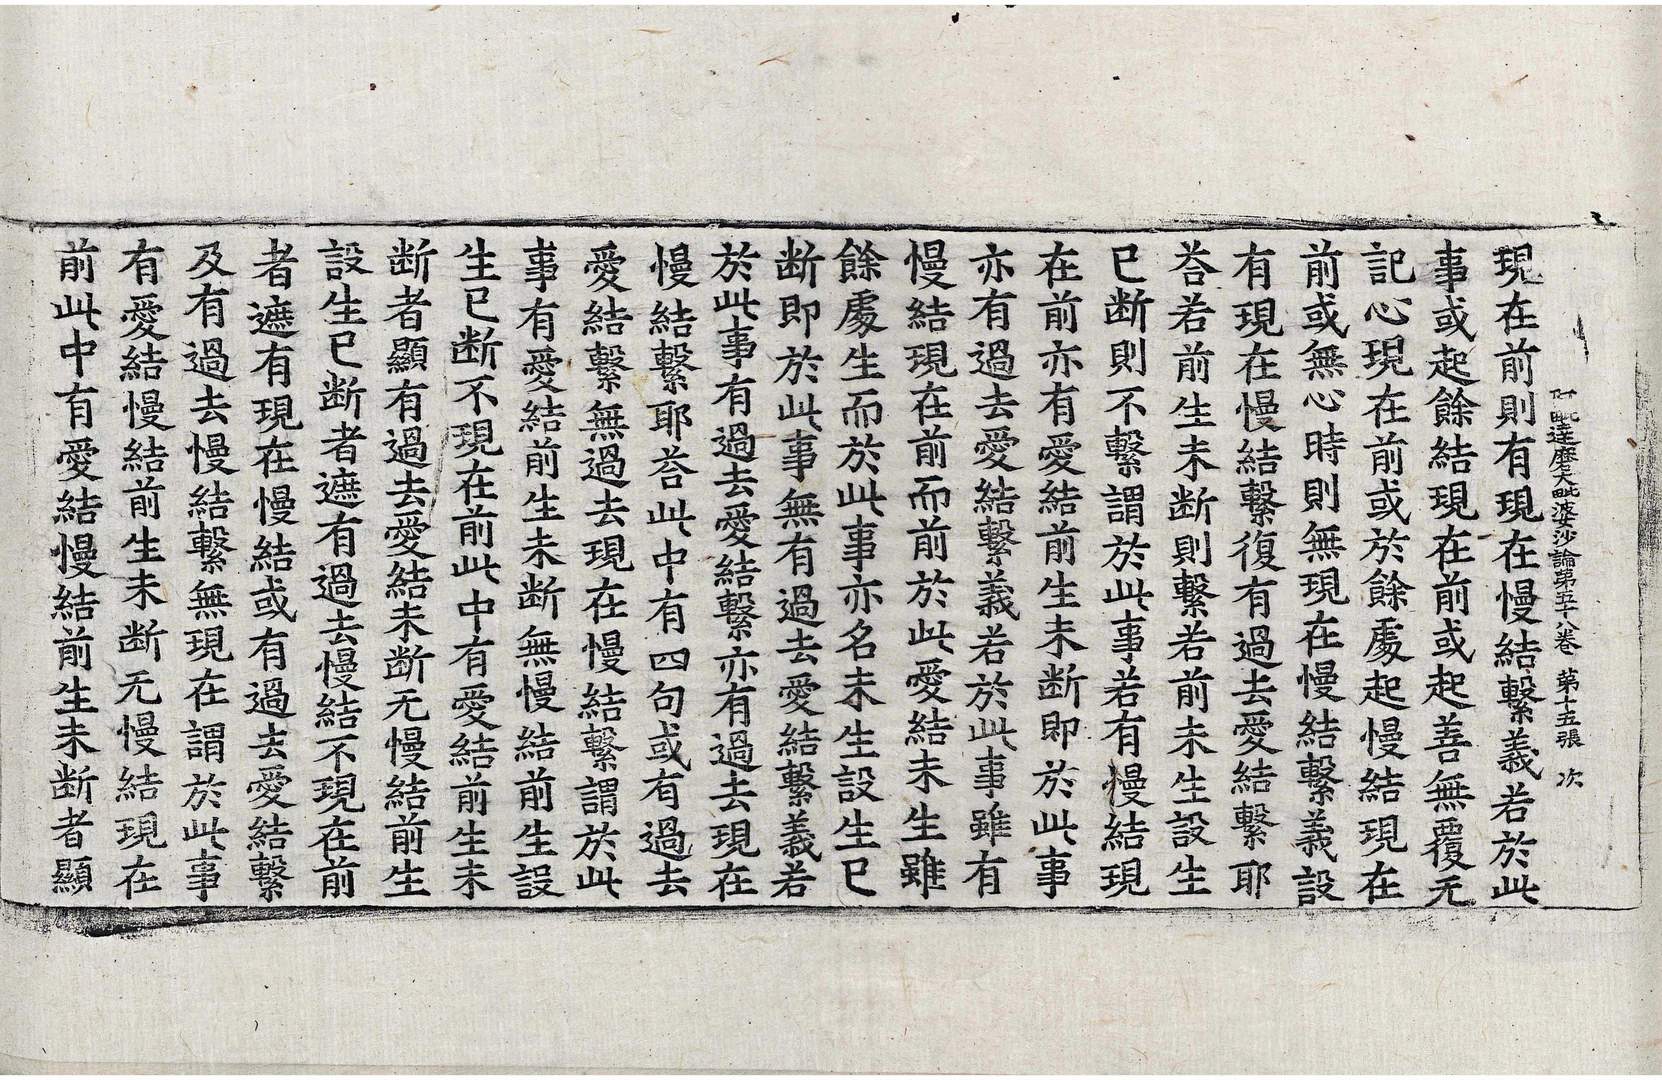 阿毗達磨大毗婆沙論第五十八卷 第十五張 次
現在前則有現在慢結繫義若於此
事或起餘結現在前或起善無覆无
記心現在前或於餘處起慢結現在
前或無心時則無現在慢結繫義設
有現在慢結繫復有過去愛結繫耶
荅若前生未斷則繫若前未生設生
已斷則不繫謂於此事若有慢結現
在前亦有愛結前生未断即於此事
亦有過去愛結繫義若於此事雖有
慢結現在前而前於此愛結未生雖
餘處生而於此事亦名未生設生已
断即於此事無有過去愛結繫義若
於此事有過去愛結繫亦有過去現在
慢結繫耶荅此中有四句或有過去
愛結繫無過去現在慢結繫謂於此
事有愛結前生未断無慢結前生設
生已断不現在前此中有愛結前生未
断者顯有過去愛結未断无慢結前生
設生已断者遮有過去慢結不現在前
者遮有現在慢結或有過去愛結繫
及有過去慢結繫無現在謂於此事
有愛結慢結前生未断无慢結現在
前此中有愛結慢結前生未断者顯